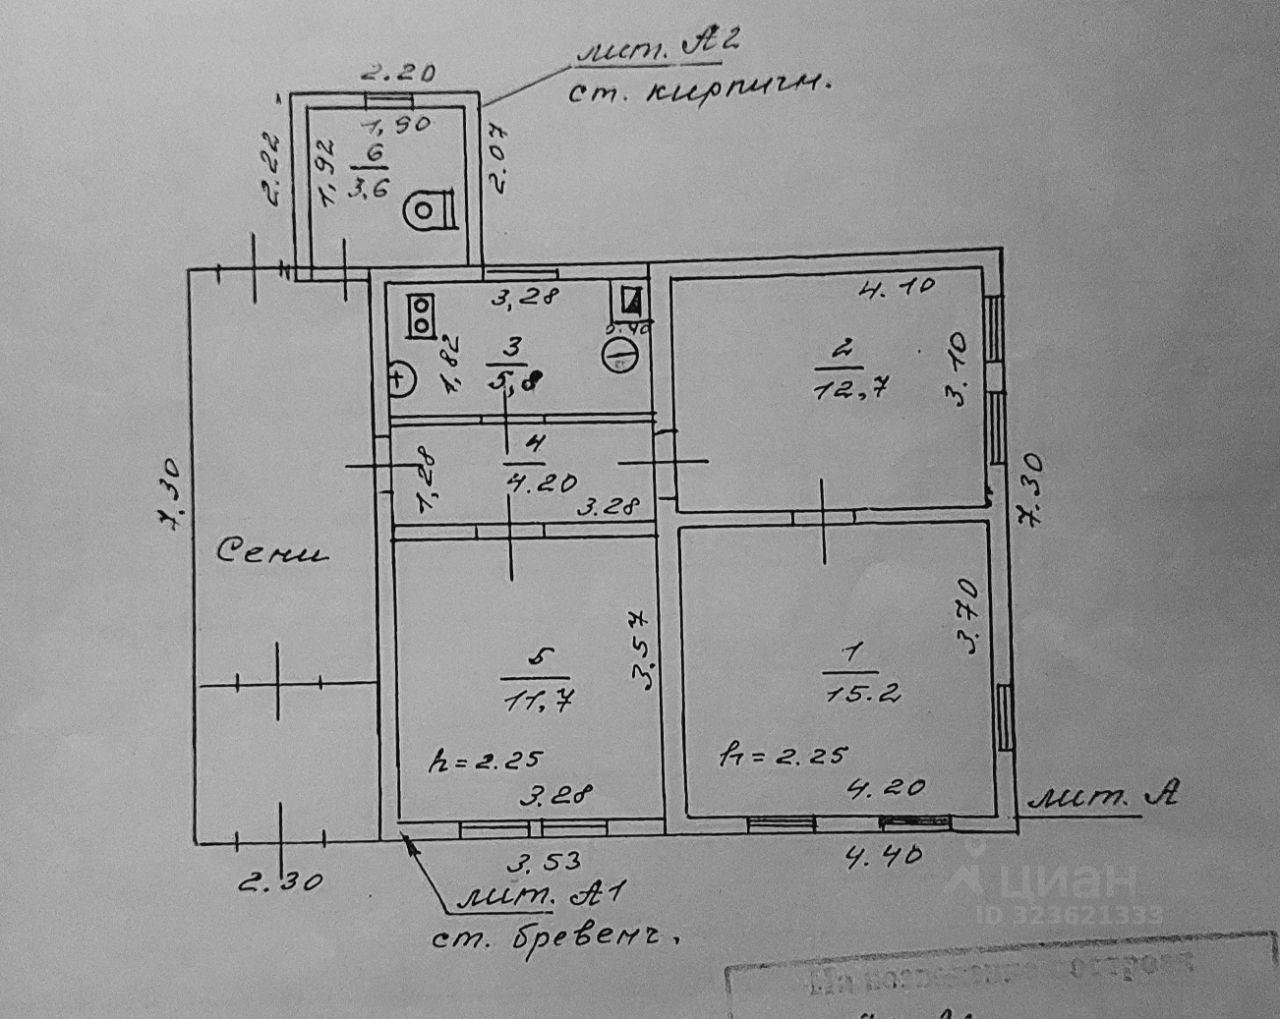 лит. А2
ст. кирпичн.
2.20
1,90
2.22
1,92
6
3,6
2.07
3,28
0.40
1,82
3
5,8
4.10
2
12,7
3.10
4
4.20
1,28
3.28
7.30
7.30
Сени
3.57
5
11,7
3.70
1
15.2
h=2.25
3.28
h=2.25
4.20
лит. А
3.53
4.40
2.30
лит. А1
ст. бревенч.
циан
ID 323621333